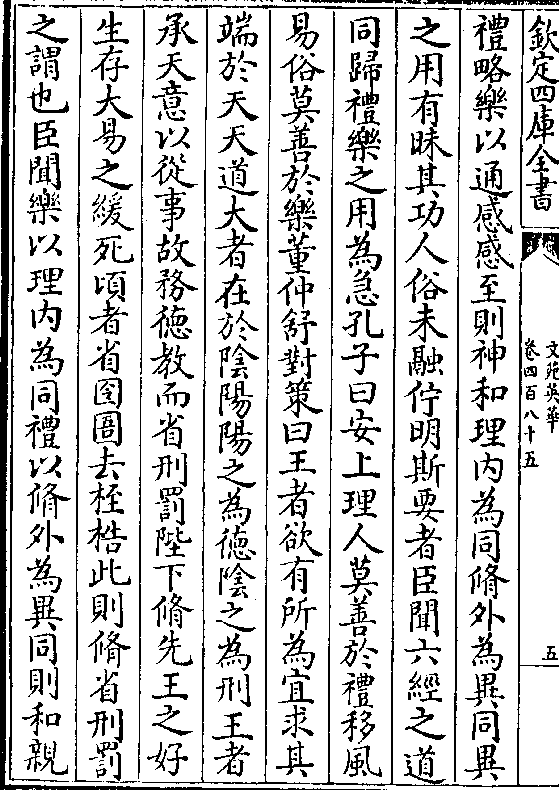 欽定四庫全書
文苑英華
卷四百八十五
五
禮略樂以通感感至則神和理内為同脩外為異同異
之用有昧其功人俗未融佇明斯要者臣聞六經之道
同歸禮樂之用為急孔子曰安上理人莫善於禮移風
易俗莫善於樂董仲舒對策曰王者欲有所為宜求其
端於天天道大者在於陰陽陽之為德陰之為刑王者
承天意以從事故務德教而省刑罰陛下脩先王之好
生存大易之緩死頃者省囹圄去桎梏此則脩省刑罰
之謂也臣聞樂以理内為同禮以脩外為異同則和親